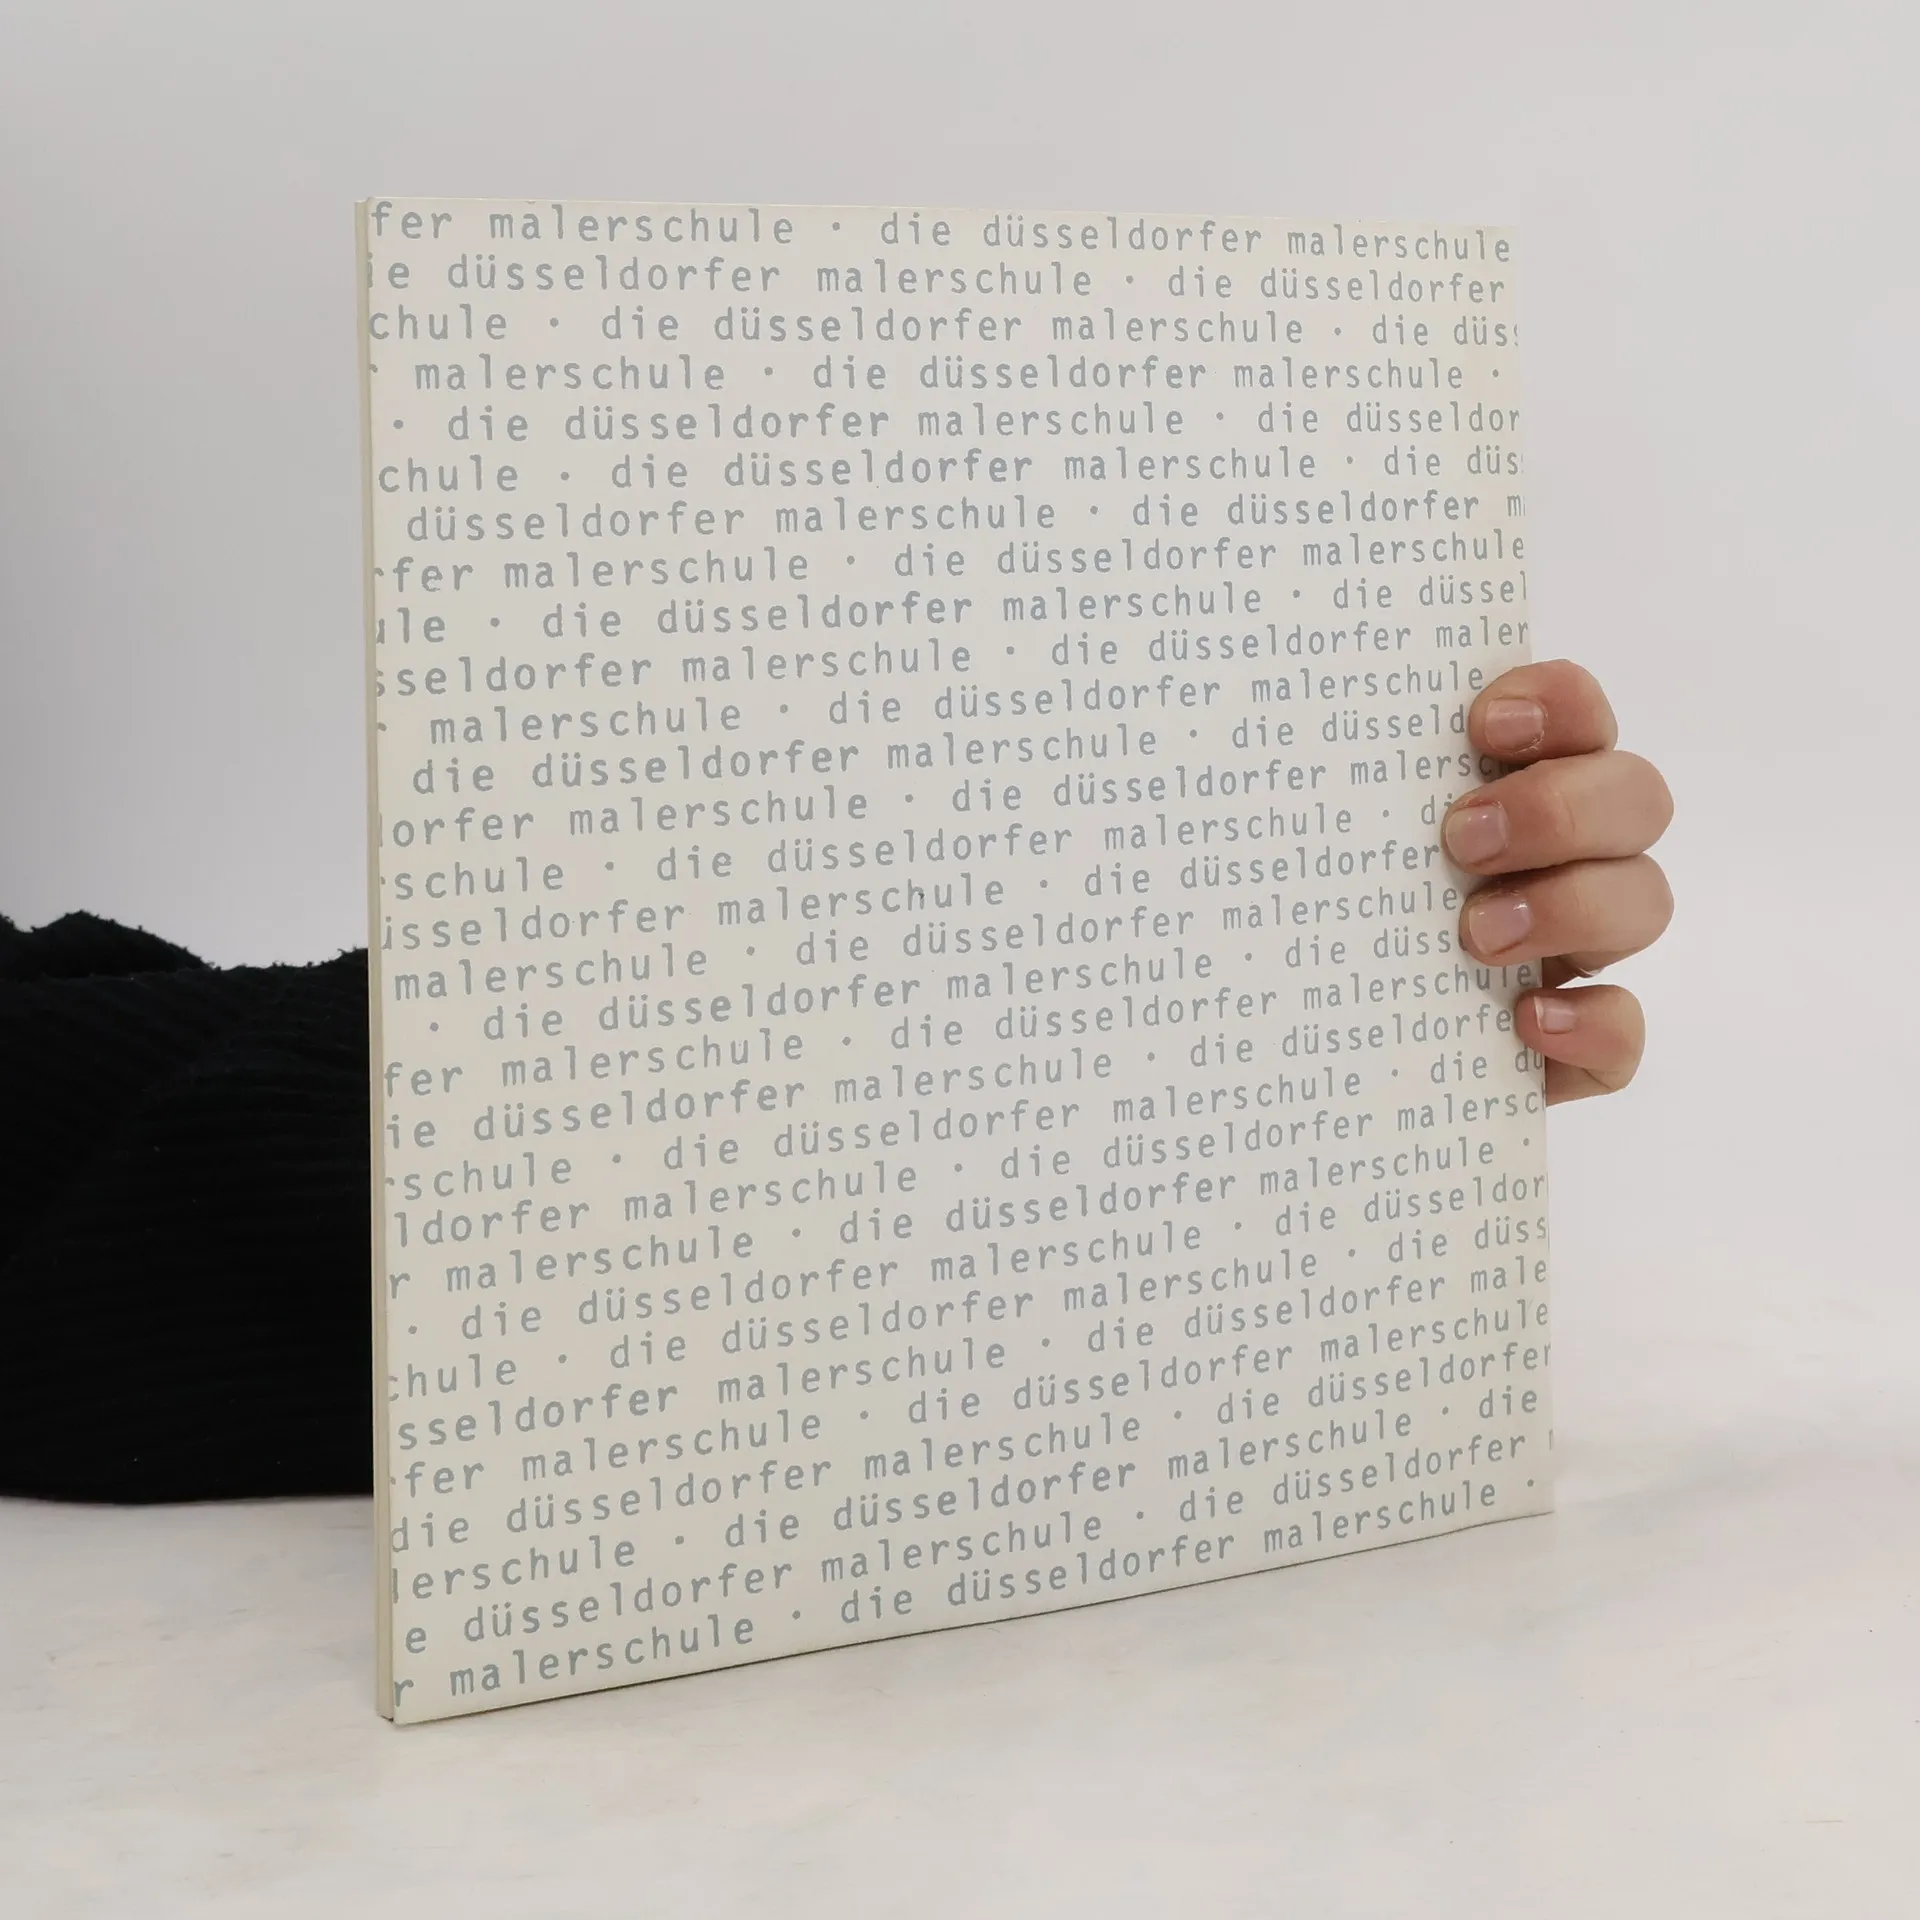 fer malerschule · die düsseldorfer malerschule
ie düsseldorfer malerschule · die düsseldorfer
chule · die düsseldorfer malerschule · die düs
· malerschule · die düsseldorfer malerschule ·
· die düsseldorfer malerschule · die düsseldor
chule · die düsseldorfer malerschule · die düs
düsseldorfer malerschule · die düsseldorfer m
fer malerschule · die düsseldorfer malerschule
le · die düsseldorfer malerschule · die düssel
sseldorfer malerschule · die düsseldorfer maler
malerschule · die düsseldorfer malerschule
die düsseldorfer malerschule · die düsseld
orfer malerschule · die düsseldorfer malersc
schule · die düsseldorfer malerschule · di
üsseldorfer malerschule · die düsseldorfer
malerschule · die düsseldorfer malerschule
· die düsseldorfer malerschule · die düss
fer malerschule · die düsseldorfer malerschule
ie düsseldorfer malerschule · die düsseldorfe
schule · die düsseldorfer malerschule · die dü
ldorfer malerschule · die düsseldorfer malersc
r malerschule · die düsseldorfer malerschule ·
· die düsseldorfer malerschule · die düsseldor
chule · die düsseldorfer malerschule · die düss
sseldorfer malerschule · die düsseldorfer male
fer malerschule · die düsseldorfer malerschule
die düsseldorfer malerschule · die düsseldorfer
lerschule · die düsseldorfer malerschule · die
e düsseldorfer malerschule · die düsseldorfer
r malerschule · die düsseldorfer malerschule ·